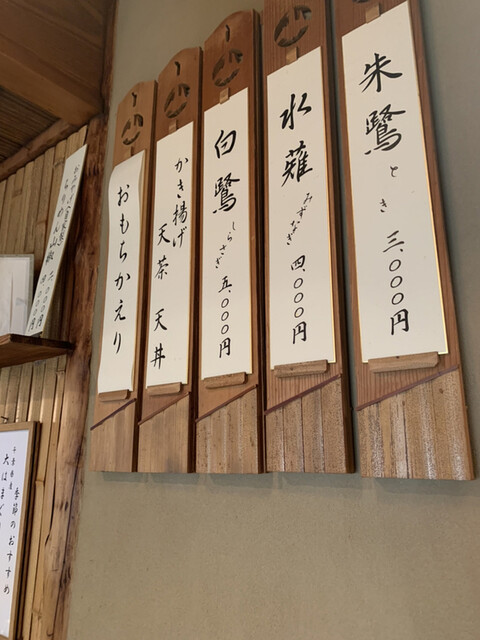 朱鷺 とき 三、〇〇〇円
水薙 みずなぎ 四、〇〇〇円
白鷺 しらさぎ 五、〇〇〇円
かき揚げ
天茶 天丼
おもちかえり
季節のおすすめ